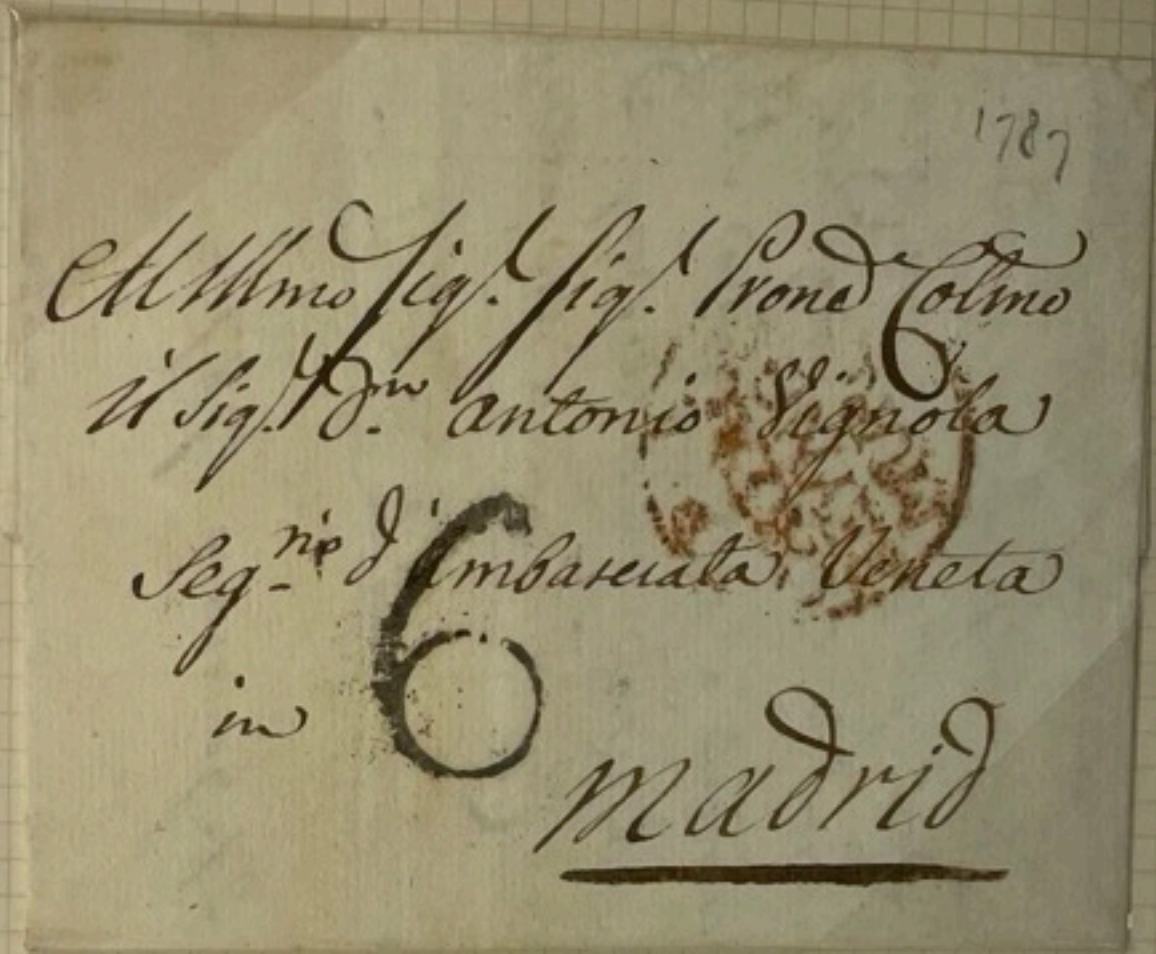 1787
All Illmo Sigr. Sigr. Prone Colmo
il Sigr. Dn. Antonio Vignola
Segrio d'imbasciata Veneta
6
in
Madrid